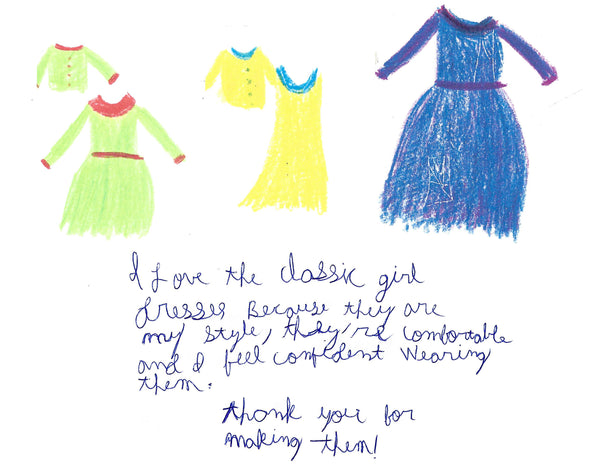 I Love the classic girl
dresses Because they are
my style, they're comfortable
and I feel confident Wearing
them.
thank you for
making them!